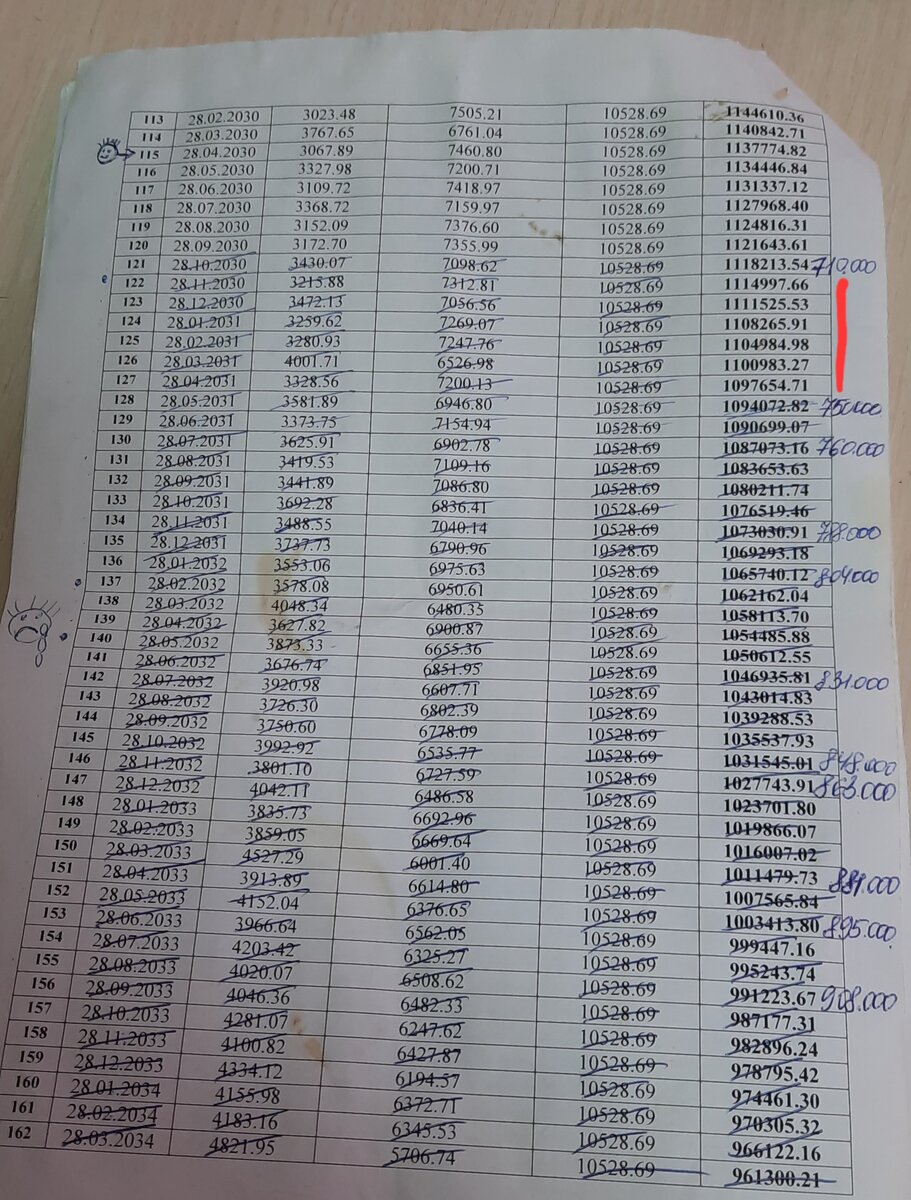 113 28.02.2030 3023.48 7505.21 10528.69 1144610.36
114 28.03.2030 3767.65 6761.04 10528.69 1140842.71
115 28.04.2030 3067.89 7460.80 10528.69 1137774.82
116 28.05.2030 3327.98 7200.71 10528.69 1134446.84
117 28.06.2030 3109.72 7418.97 10528.69 1131337.12
118 28.07.2030 3368.72 7159.97 10528.69 1127968.40
119 28.08.2030 3152.09 7376.60 10528.69 1124816.31
120 28.09.2030 3172.70 7355.99 10528.69 1121643.61
121 28.10.2030 3430.07 7098.62 10528.69 1118213.54 710.000
122 28.11.2030 3215.88 7312.81 10528.69 1114997.66
123 28.12.2030 3472.13 7056.56 10528.69 1111525.53
124 28.01.2031 3259.62 7269.07 10528.69 1108265.91
125 28.02.2031 3280.93 7247.76 10528.69 1104984.98
126 28.03.2031 4001.71 6526.98 10528.69 1100983.27
127 28.04.2031 3328.56 7200.13 10528.69 1097654.71
128 28.05.2031 3581.89 6946.80 10528.69 1094072.82 750.000
129 28.06.2031 3373.75 7154.94 10528.69 1090699.07
130 28.07.2031 3625.91 6902.78 10528.69 1087073.16 760.000
131 28.08.2031 3419.53 7109.16 10528.69 1083653.63
132 28.09.2031 3441.89 7086.80 10528.69 1080211.74
133 28.10.2031 3692.28 6836.41 10528.69 1076519.46
134 28.11.2031 3488.55 7040.14 10528.69 1073030.91 788.000
135 28.12.2031 3737.73 6790.96 10528.69 1069293.18
136 28.01.2032 3553.06 6975.63 10528.69 1065740.12 804.000
137 28.02.2032 3578.08 6950.61 10528.69 1062162.04
138 28.03.2032 4048.34 6480.35 10528.69 1058113.70
139 28.04.2032 3627.82 6900.87 10528.69 1054485.88
140 28.05.2032 3873.33 6655.36 10528.69 1050612.55
141 28.06.2032 3676.74 6851.95 10528.69 1046935.81 831.000
142 28.07.2032 3920.98 6607.71 10528.69 1043014.83
143 28.08.2032 3726.30 6802.39 10528.69 1039288.53
144 28.09.2032 3750.60 6778.09 10528.69 1035537.93
145 28.10.2032 3992.92 6535.77 10528.69 1031545.01 848.000
146 28.11.2032 3801.10 6727.59 10528.69 1027743.91 863.000
147 28.12.2032 4042.11 6486.58 10528.69 1023701.80
148 28.01.2033 3835.73 6692.96 10528.69 1019866.07
149 28.02.2033 3859.05 6669.64 10528.69 1016007.02
150 28.03.2033 4527.29 6001.40 10528.69 1011479.73 881.000
151 28.04.2033 3913.89 6614.80 10528.69 1007565.84
152 28.05.2033 4152.04 6376.65 10528.69 1003413.80 895.000
153 28.06.2033 3966.64 6562.05 10528.69 999447.16
154 28.07.2033 4203.42 6325.27 10528.69 995243.74
155 28.08.2033 4020.07 6508.62 10528.69 991223.67 908.000
156 28.09.2033 4046.36 6482.33 10528.69 987177.31
157 28.10.2033 4281.07 6247.62 10528.69 982896.24
158 28.11.2033 4100.82 6427.87 10528.69 978795.42
159 28.12.2033 4334.12 6194.57 10528.69 974461.30
160 28.01.2034 4155.98 6372.71 10528.69 970305.32
161 28.02.2034 4183.16 6345.53 10528.69 966122.16
162 28.03.2034 4821.95 5706.74 10528.69 961300.21